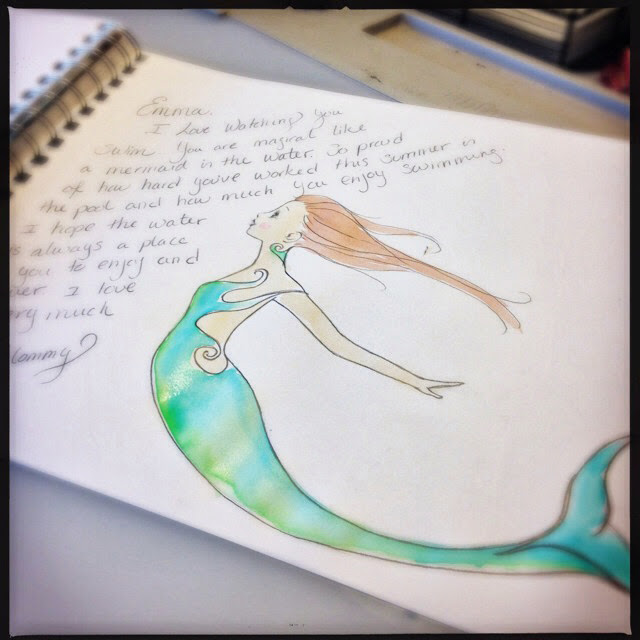 Emma.
I Love Watching you
Swim. You are magical like
a mermaid in the water. So proud
of how hard you've worked this summer in
the pool and how much you enjoy swimming.
I hope the water
is always a place
you to enjoy and
I love
very much
Mommy